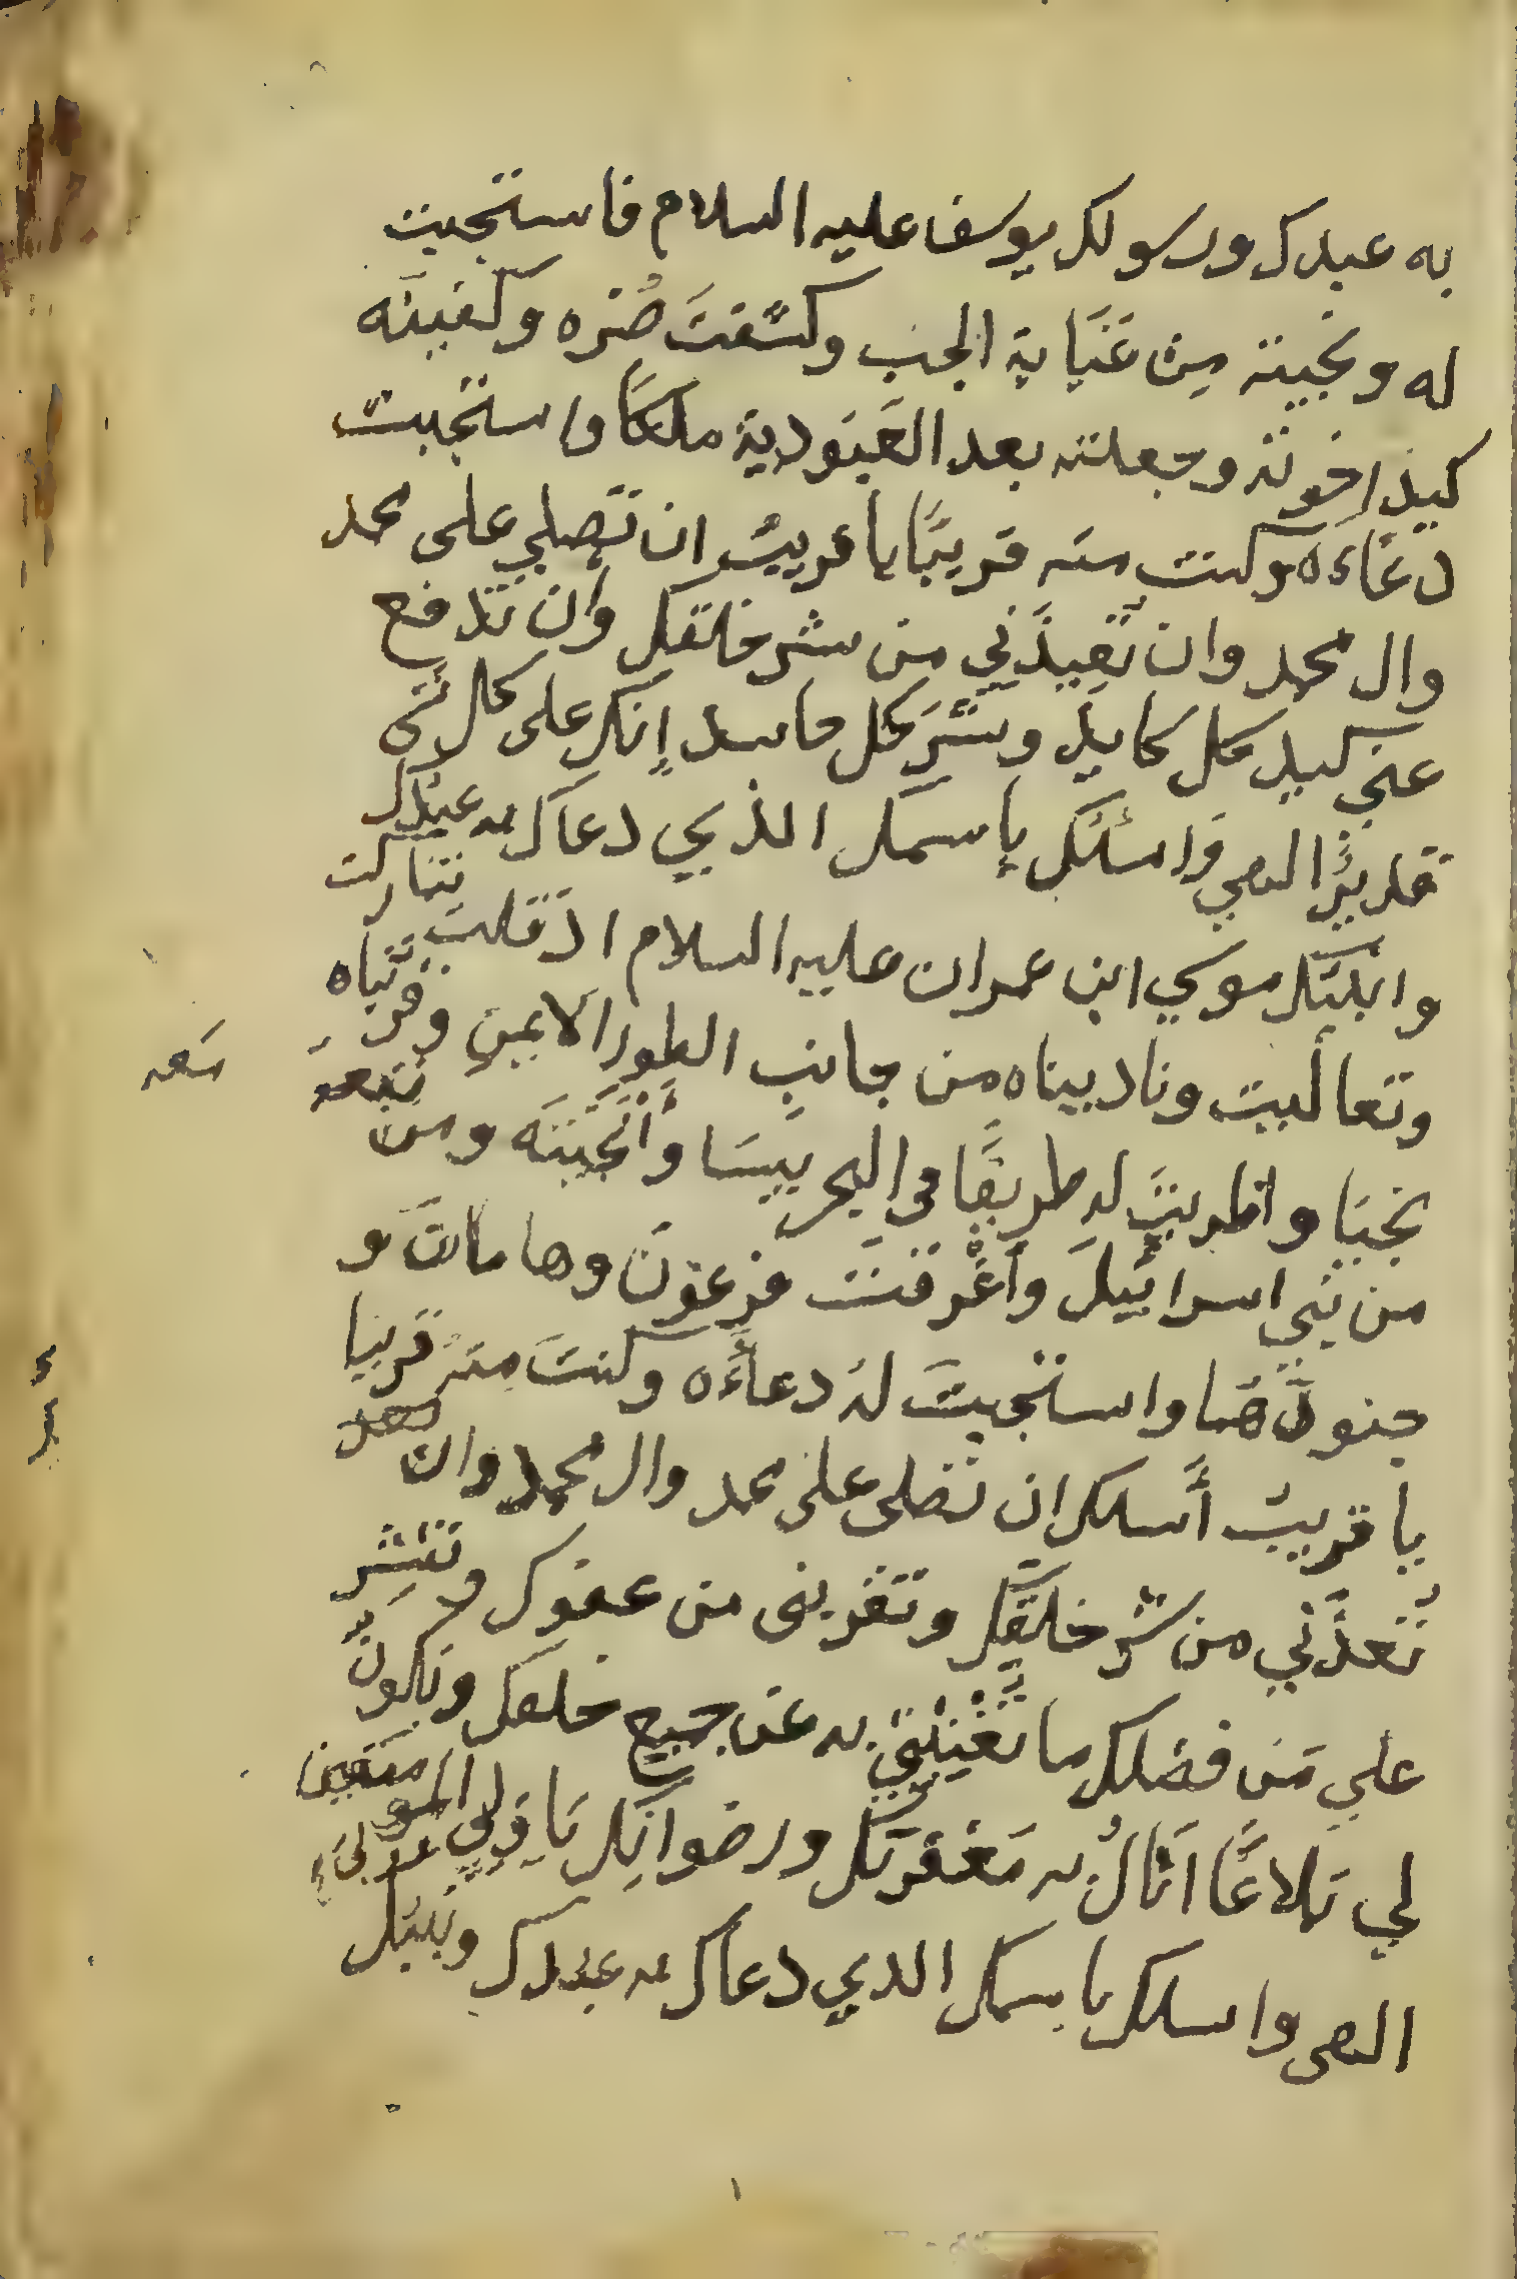 به عبدك ورسولك يوسف عليه السلام فاستجبت
له ونجيته من غَيَابة الجب وكشفتَ ضُره وكفيتَه
كيد اخوته وجعلته بعد العَبُودية ملكًا واستجبت
دعَاءه وكنت منه قريبًا يا قريبُ ان تصلي على محمد
وال محمد وان تُعِيذَني من شر خلقك وان تدفع
عني كيد كل كايدٍ وشَرَ كل حاسد إنك على كل شى
قديرٌ الهي وَاسئلك بإسمك الذي دعاك به عبدُك
ونبيّك موسي ابن عمران عليه السلام اذ قلت تباركت
وتعاليت وناديناه من جانبِ الطور الايمنِ وقرّبناه
نجيَا وضربتَ له طريقًا في البحر يبسَا وَأَنْجَيتَه ومن تبعهُ
معه
من بَني اسرائيلَ وأغْرقتَ فرعونَ وهامانَ و
جنودَهُما واستجبتَ لهُ دعاءَه وكنتَ منهُ قريبا
يا قريبُ أسئلك ان تصلى على محمد وال محمد وان
تُعذَني من شر خلقِكَ وتقربنى من عفوك وتنشر
علي مَن فضلك ما تُغْنِيْنِي به عن جميع خلقك وتكونُ
لي بَلاغًا انَالُ به مَغفرتك ورضوانك يَا وَلِي المومنين
الهى واسئلك باسمك الذي دعاك به عبدك ونبيك